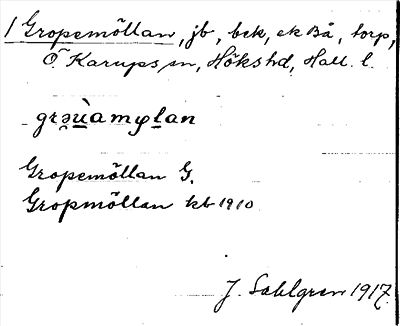 1 Gropemöllan, jb, bck, ek Bå, torp,
Ö. Karups sn, Hökshd, Hall. l.
Gropemöllan G.
Gropmöllan kb 1910
J. Sahlgren 1917.